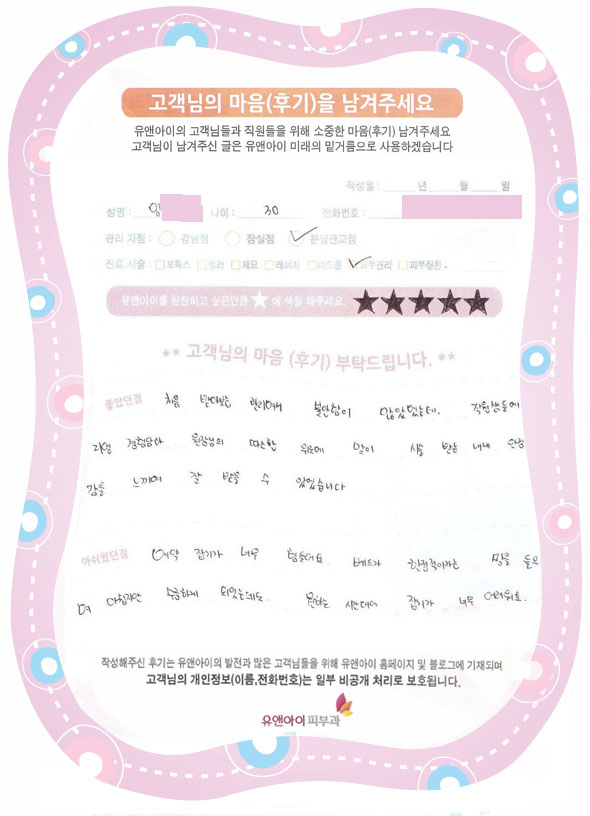 고객님의 마음(후기)을 남겨주세요
유앤아이의 고객님들과 직원들을 위해 소중한 마음(후기) 남겨주세요
고객님이 남겨주신 글은 유앤아이 미래의 밑거름으로 사용하겠습니다
작성일 : 년 월 일
성명 : 양 나이 : 30 전화번호 :
관리 지점 : 강남점 잠실점 분당판교점
진료,시술 : 보톡스 필러 제모 레이저 여드름 피부관리 피부질환
유앤아이를 칭찬하고 싶은만큼 ★에 색칠 해주세요. ★★★★★
** 고객님의 마음 (후기) 부탁드립니다. **
좋았던점 처음 받아보는 관리여서 불안함이 많았었는데. 직원쌤들에
리얼 경험담과 원장님의 따뜻한 위로에 맘이 시술 받는 내내 안정
감을 느끼며 잘 받을 수 있었습니다
아쉬웠던점 예약 잡기가 너무 힘들어요. 베드가 한정적이라는 말을 듣고
더 마음지만 수긍하게 되었는데도. 원하는 시간대에 잡기가 너무 어려워요.
작성해주신 후기는 유앤아이의 발전과 많은 고객님들을 위해 유앤아이 홈페이지 및 블로그에 기재되며
고객님의 개인정보(이름,전화번호)는 일부 비공개 처리로 보호됩니다.
유앤아이피부과